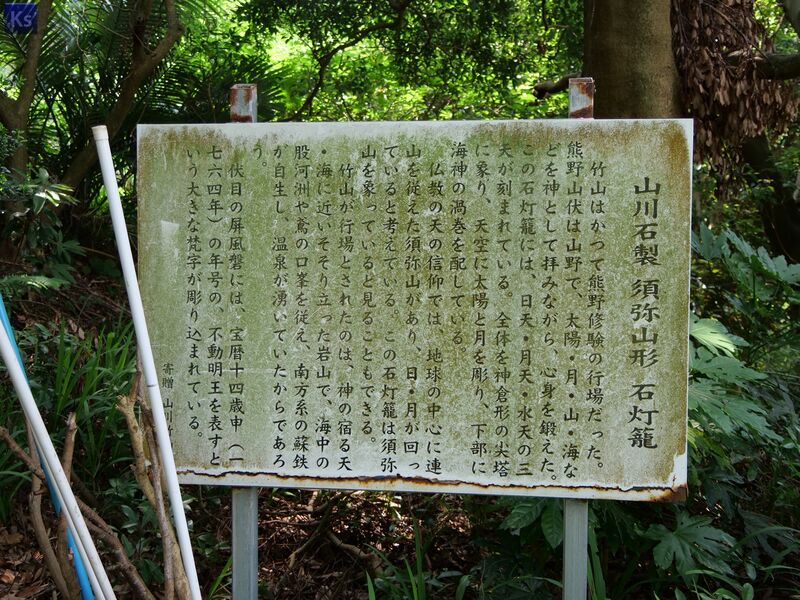 山川石製 須弥山形 石灯籠
竹山はかつて熊野修験の行場だった。
熊野山伏は山野で、太陽・月・山・海な
どを神として拝みながら、心身を鍛えた。
この石灯籠には、日天・月天・水天の三
天が刻まれている。全体を神倉形の尖塔
に象り、天空に太陽と月を彫り、下部に
海神の渦巻を配している。
仏教の天の信仰では、地球の中心に連
山を従えた須弥山があり、日・月が回っ
ていると考えている。この石灯籠は須弥
山を象っていると見ることもできる。
竹山が行場とされたのは、神の宿る天
・海に近いそそり立った岩山で、海中の
股河洲や鳶の口峯を従え、南方系の蘇鉄
が自生し、温泉が湧いていたからであろ
う。
伏目の屏風磐には、宝暦十四歳申（一
七六四年）の年号の、不動明王を表すと
いう大きな梵字が彫り込まれている。
寄贈 山川
Ks